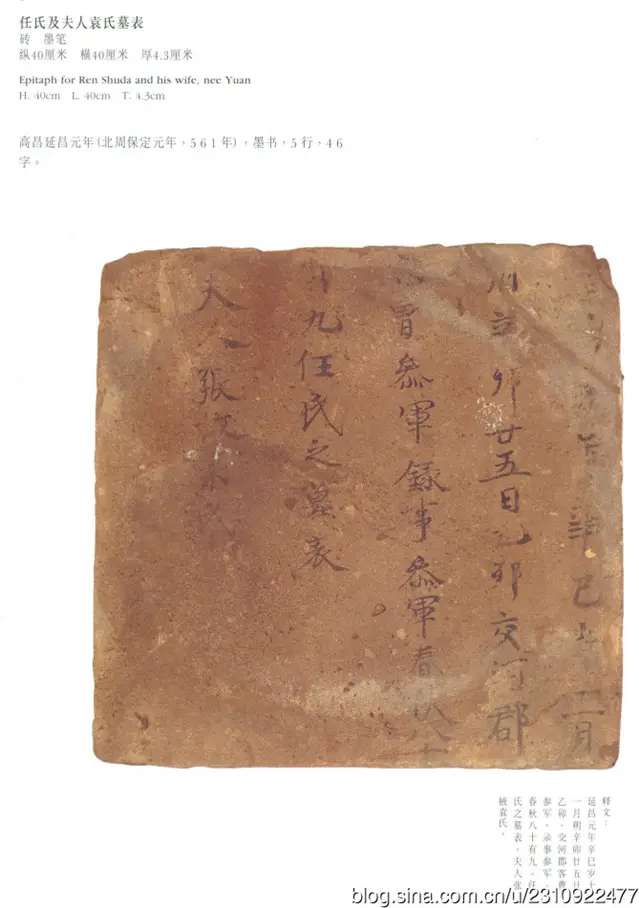 任氏及夫人袁氏墓表
砖 墨笔
纵40厘米 横40厘米 厚4.3厘米
Epitaph for Ren Shuda and his wife, nee Yuan
H. 40cm L. 40cm T. 4.3cm
高昌延昌元年(北周保定元年，561年)，墨书，5行，46
字。
辛巳 一月
卯廿五日乙卯交河郡
曹叅軍録事叅軍春秋八十
九任氏之墓表
夫人張掖袁氏
释文：
延昌元年辛巳岁十
一月朔辛卯廿五日
乙卯，交河郡客曹
参军，录事参军，
春秋八十有九，任
氏之墓表，夫人张
掖袁氏。
blog.sina.com.cn/u/2310922477